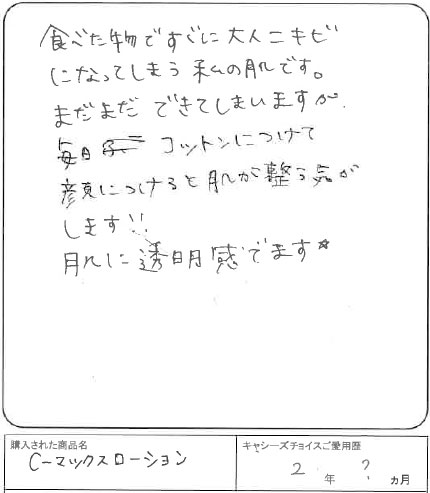 食べた物ですぐに大人ニキビ
になってしまう私の肌です。
まだまだできてしまいますが、
毎日 コットンにつけて
顔につけると肌が整う気が
します!!
肌に透明感でます☆
購入された商品名
C-マックスローション
キャシーズチョイスご愛用歴
2年?ヵ月